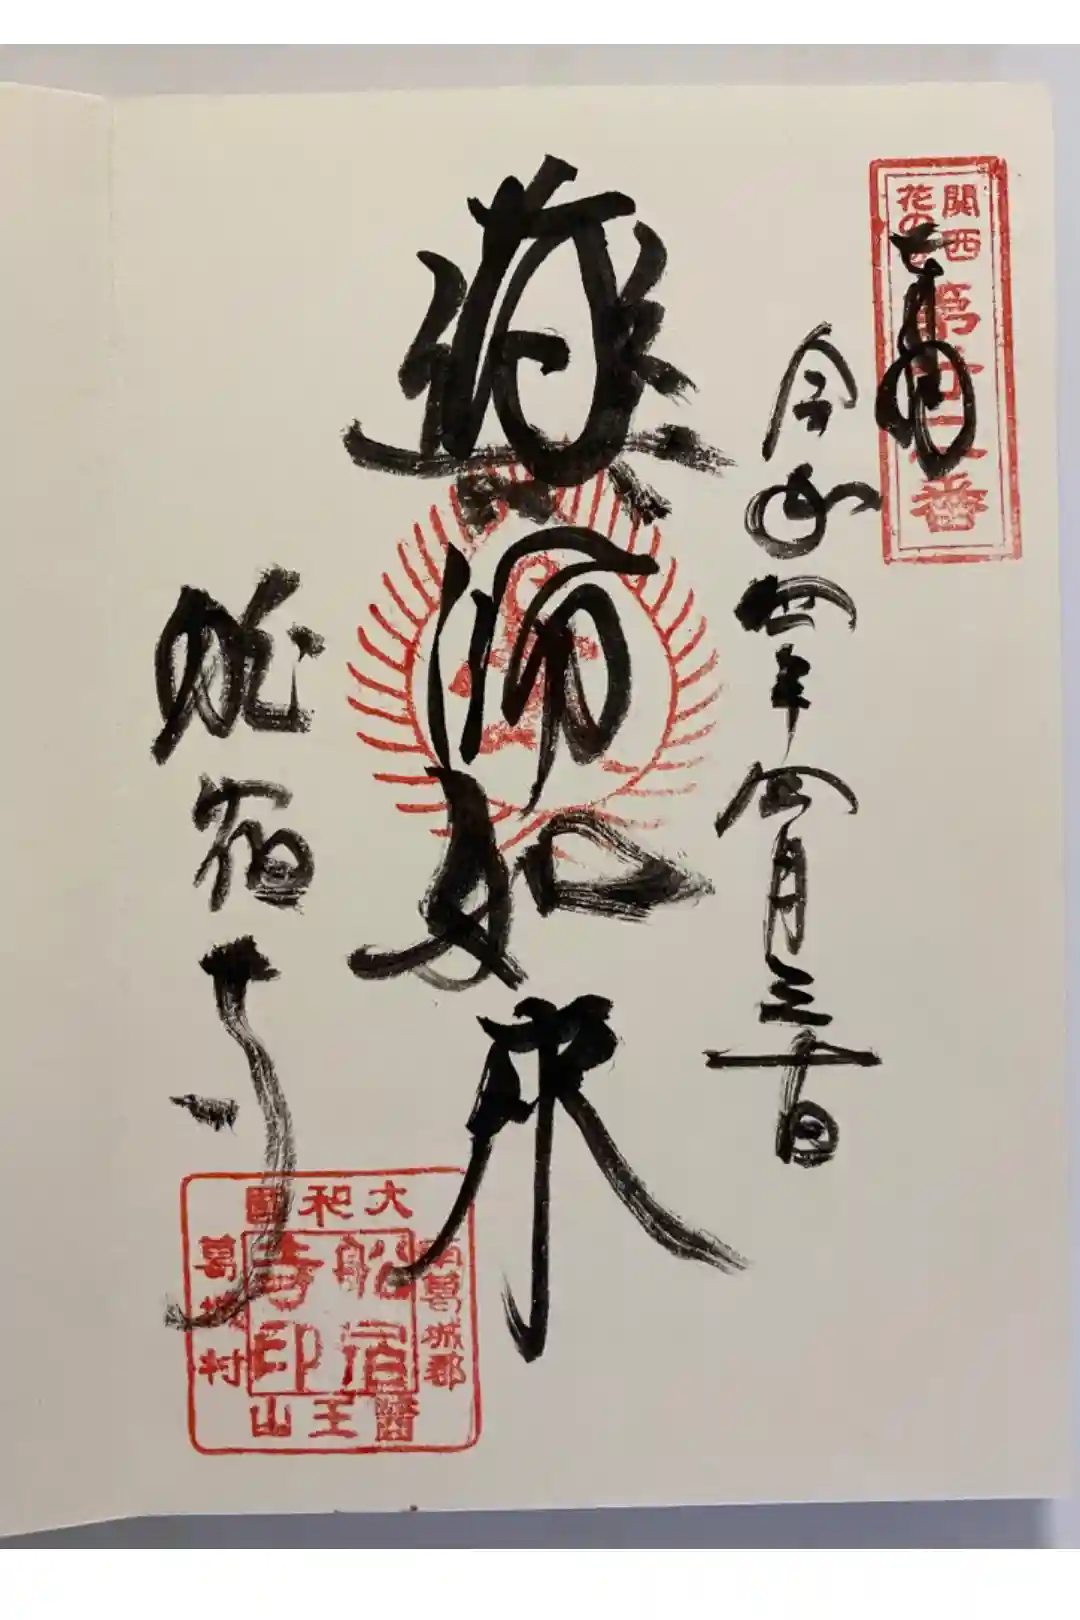 奉拝
関西
花の寺
第廿二番
令和四年四月三十日
薬師如来
船宿寺
大和国
南葛城郡
葛城村
醫王山
船宿
寺印